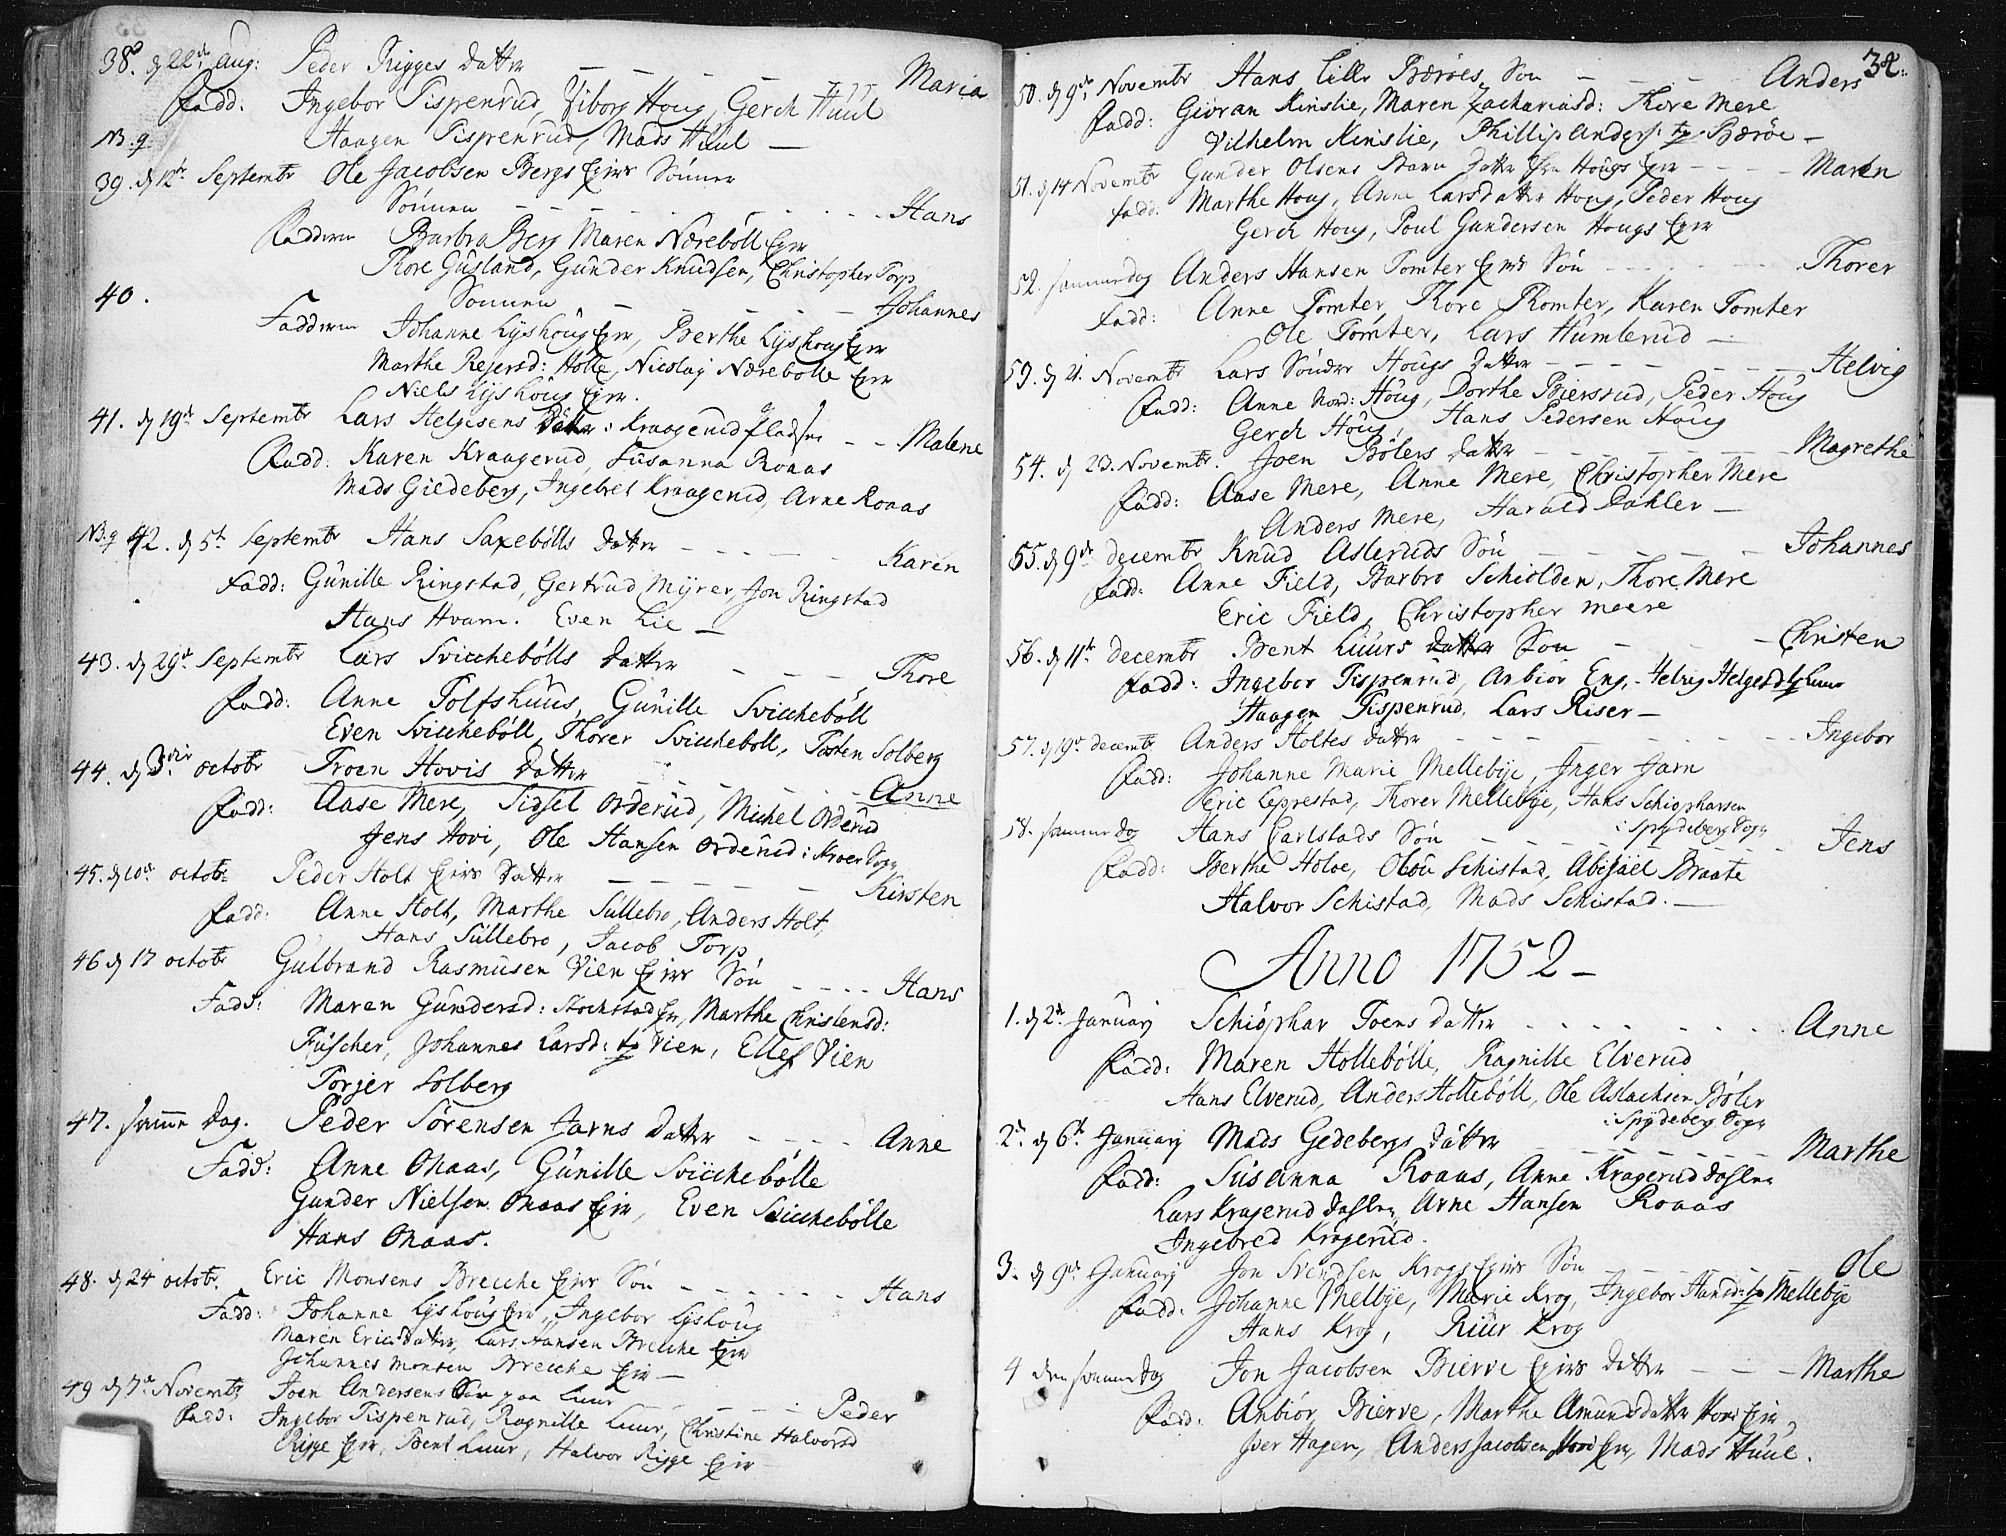 38. d 22de Aug: Peder Rigges datter — — — — Maria
Fadd: Ingebor Tispenrud, Ziborg Houg, Gerch Huul
NB. 9 Haagen Tispenrud, Mads Huul —
39. d 12te Septembr Ole Jacobsen Bergs Ejers Sønner
Sønnen — — — — Hans
Faddere Barbra Berg Maren Nærebøll Ejer
Thore Gusland, Gunder Knudsen, Christopher Torp
40. Sønnen — — — — Johannes
Faddere Johanne Lyshoug Ejer, Berthe Lyshoug Ejer
Marthe Rejersd: Holle, Nicolay Nærebølle Ejer
Niels Lyshoug Ejer.
41. d 19de Septembr Lars Helgesens Datter: Kraagerud pladsen — — Malene
Fadd: Karen Kraagerud, Susanna Roaas
Mads Giedeberg, Ingebret Kraagerud, Arne Roaas
NB. 9 42. d 5te Septembr Hans Saxebølls datter — — — — Karen
Fadd: Gunille Ringstad, Gertrud Myrer, Jon Ringstad
Hans Hvam. Even Lie —
43. d 29de Septembr Lars Svicchebølls datter — — — Thore
Fadd: Anne Tolfshuus, Gunille Svicchebøll
Even Svicchebøll, Thorer Svicchebøll, Tosten Solberg
44. d 3die octobr Troen Hovis Datter — — — — Anne
Fadd: Aase Mere, Sidsel Orderud, Michel Orderud
Jens Hovi, Ole Hansen Orderud i Kroer Sogn
45. d 10de octobr: Peder Holt Ejers datter — — — — Kirsten
Fadd: Anne Holt, Marthe Sullebro, Anders Holt,
Hans Sullebro, Jacob Torp
46 d 17 octobr Gulbrand Rasmusen Vien Ejers Søn — — — — Hans
Fadd: Maren Gundersd: Stochstad Ejer, Marthe Christensd:
Fuscher, Johannes Larsd: Vien, Ellef Vien
Torjer Solberg
47. samme Dag. Peder Sørensen Jarns datter — — — — Anne
Fadd: Anne Onaas, Gunille Svicchebølle
Gunder Nielsen Onaas Ejer, Even Svicchebølle
Hans Onaas.
48. d 24 octobr. Eric Monsens Brecche Ejers Søn — — — — Hans
Fadd: Johanne Lyshoug Ejer, Ingebor Lyshoug
Maren Ericsdatter, Lars Hansen Brecche Ejer
Johannes Monsen Brecche Ejer —
49 d 7de Novembr Joen Andersens Søn paa Luur — — — Peder
Fadd: Ingebor Tispenrud, Ragnille Luur, Christine Halvorsd
Rigge Ejer, Bent Luur, Halvor Rigge Ejer —
34.
50. d 9de Novembr Hans Lille Bærøes Søn — — — Anders
Fadd: Giøran Kinslie, Maren Zachariasd: Thore Mere
Vilhelm Kinslie, Phillip Anders: Bærøe —
51. d 14 Novembr Gunder Olsens Barn datter fra Hougs Ejer — — — Maren
Fadd: Marthe Houg, Anne Larsdatter Houg, Peder Houg
Gerch Houg, Poul Gundersen Hougs Ejer
52. samme dag Anders Hansen Tomter Ejers Søn — — — Thorer
Fadd: Anne Tomter, Thore Tomter, Karen Tomter
Ole Tomter, Lars Humlerud —
53. d 21. Novembr Lars Søndre Hougs datter — — — — Helvig
Fadd: Anne Nord: Houg, Dorthe Biersrud, Peder Houg
Gerch Houg, Hans Pedersen Houg
54. d 23. Novembr. Joen Bølers datter — — — — Magrethe
Fadd: Aase Mere, Anne Mere, Christopher Mere
Anders Mere, Harald Dahler —
55. d 9de decembr Knud Asleruds Søn — — — — Johannes
Fadd: Anne Field, Barbro Schiolden, Thore Mere
Eric Field, Christopher Meere
56. d 11te decembr Bent Luurs datter Søn — — — Christen
Fadd: Ingebor Tispenrud, Anbiør Eng, Helvig Helgesd Luur
Haagen Tispenrud, Lars Riser —
57. d 19de decembr Anders Holtes datter — — — — Ingebor
Fadd: Johanne Marie Mellebye, Inger Jarn
Eric Lepprestad, Thorer Mellebye, Hans Schiopharsen
i Spydeberg Sogn
58. samme dag Hans Carlstads Søn — — — — Jens
Fadd: Berthe Holoe, Olou Schistad, Abigaël Braate
Halvor Schistad, Mads Schistad. —
Anno 1752 —
1. d 2de January Schiøphar Toens datter — — — — Anne
Fadd: Maren Hollebølle, Ragnille Elverud
Hans Elverud, Anders Hollebøll, Ole Aslachsen Bøler
i Spydeberg Sogn
2. d 6te January Mads Gedebergs datter — — — — Marthe
Fadd: Susanna Roaas, Anne Kragerud
Lars Kragerud, Arne Hansen Roaas
Ingebred Kragerud.
3. d 9de January Jon Svendsen Krogs Ejers Søn — — — — Ole
Fadd: Johanne Melbye, Marie Krog, Ingebor Hansd: Mellebye
Hans Krog, Riur Krog
4 den samme Dag Jon Jacobsen Bierve Ejers datter — — — Marthe
Fadd: Anbiør Bierve, Marthe Amundsdatter Hovi Ejer,
Iver Hagen, Anders Jacobsen Hovi Ejer, Mads Huul.